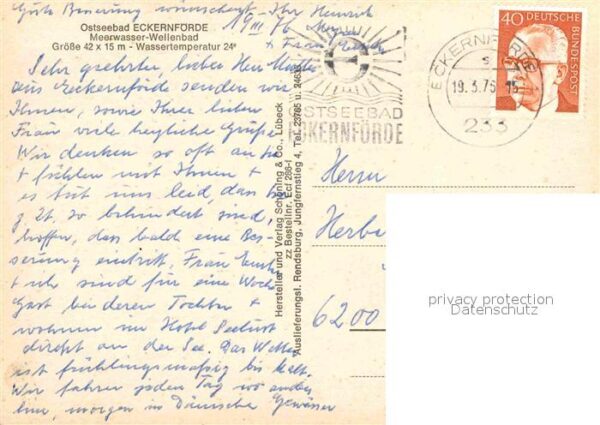 Gute Besserung wünscht Ihr Heinrich
19 III 76
+ Frau
Ostseebad ECKERNFÖRDE
Meerwasser-Wellenbad
Größe 42 x 15 m - Wassertemperatur 24°
Sehr geehrter, lieber Herr
aus Eckernförde senden wir
Ihnen, sowie Ihrer lieben
Frau viele herzliche Grüße
Wir denken so oft an Sie
+ fühlen mit Ihnen +
es tut uns leid, dass Sie
z. Zt. so behindert sind,
hoffen, dass bald eine Bes-
serung eintritt. Frau
+ ich sind für eine Woche
Gast bei deren Tochter +
wohnen im Hotel Seelust
direkt an der See. Das Wetter
ist frühlingsmäßig bis kalt.
Wir fahren jeden Tag wo anders
hin, morgen in Dänische Gewässer
Hersteller und Verlag Schöning & Co., Lübeck
zz Bestellnr. Ecf 266-I
Auslieferungsl. Rendsburg, Jungfernstieg 4, Tel. 23785 u.
OSTSEEBAD
ECKERNFÖRDE
ECKERNFÖRDE
19.3.76
233
40 DEUTSCHE
BUNDESPOST
Herrn
Herbe
6200
privacy protection
Datenschutz